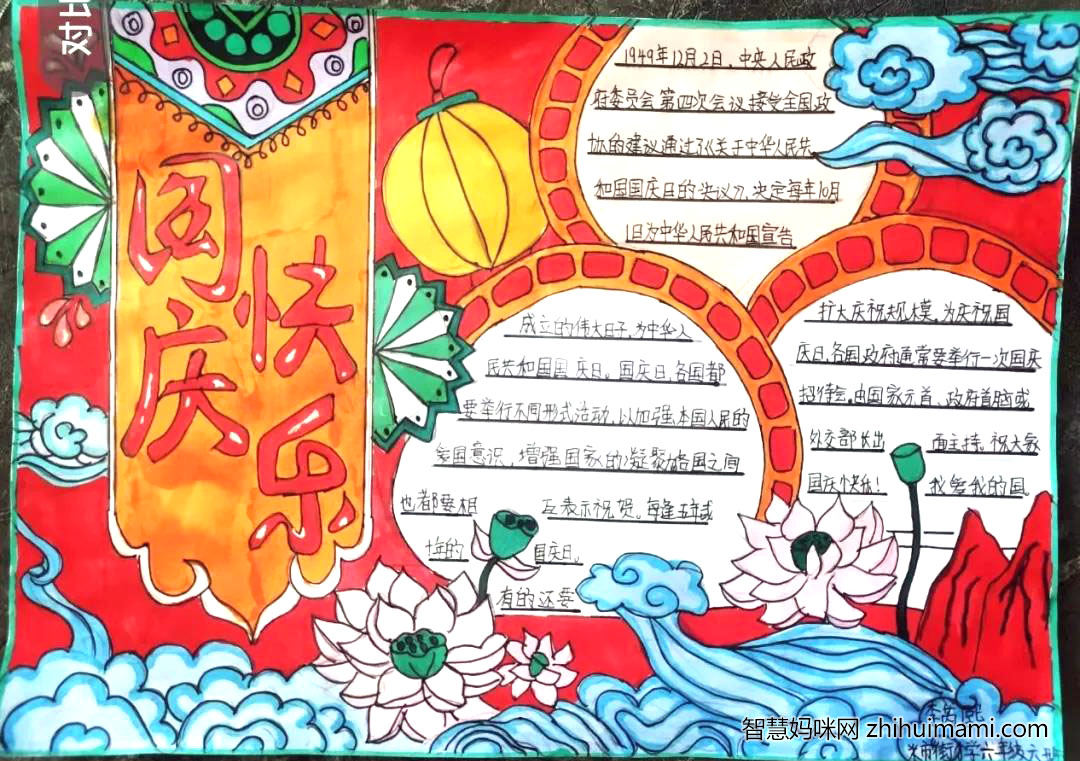 对比
国庆
快乐
1949年12月2日,中央人民政
府委员会第四次会议接受全国政
协的建议通过了《关于中华人民共
和国国庆日的决议》,决定每年10月
1日为中华人民共和国宣告
成立的伟大日子,为中华人
民共和国国庆日。国庆日,各国都
要举行不同形式活动,以加强本国人民的
爱国意识,增强国家的凝聚力各国之间
也都要相 互表示祝贺。每逢五年或
十年的 国庆日。
有的还要
扩大庆祝规模,为庆祝国
庆日,各国政府通常要举行一次国庆
招待会,由国家元首、政府首脑或
外交部长出 面主持。祝大家
国庆快乐! 我爱我的国。
智慧妈咪网 zhihuimami.com
六年级六班